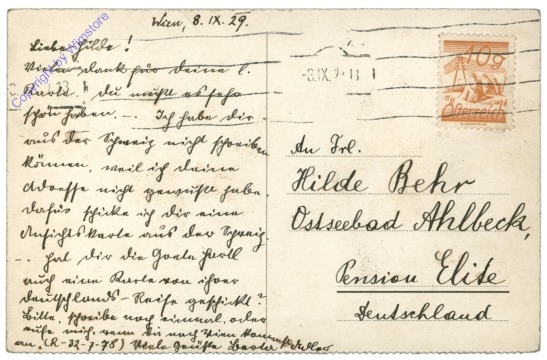 Wien, 8. IX. 29.
Liebe Hilde!
Vielen Dank für Deine l.
Karte. Du mußt es sehr
schön haben. - Ich habe dir
aus der Schweiz nicht schreiben
können, weil ich deine
Adresse nicht gewußt habe.
Dafür schicke ich dir eine
Ansichtskarte aus der Schweiz.
- Hat dir die Grete Hartl
auch eine Karte von ihrer
Deutschlands-Reise geschickt?
Bitte, schreibe noch einmal, oder
rufe mich, wenn Du nach Wien kommst
an. (R-32-7-78) Viele Grüße Berta
-8.IX.2 -13
10g
Österreich
An Frl.
Hilde Behr
Ostseebad Ahlbeck,
Pension Elite
Deutschland
Copyright by Wignstore